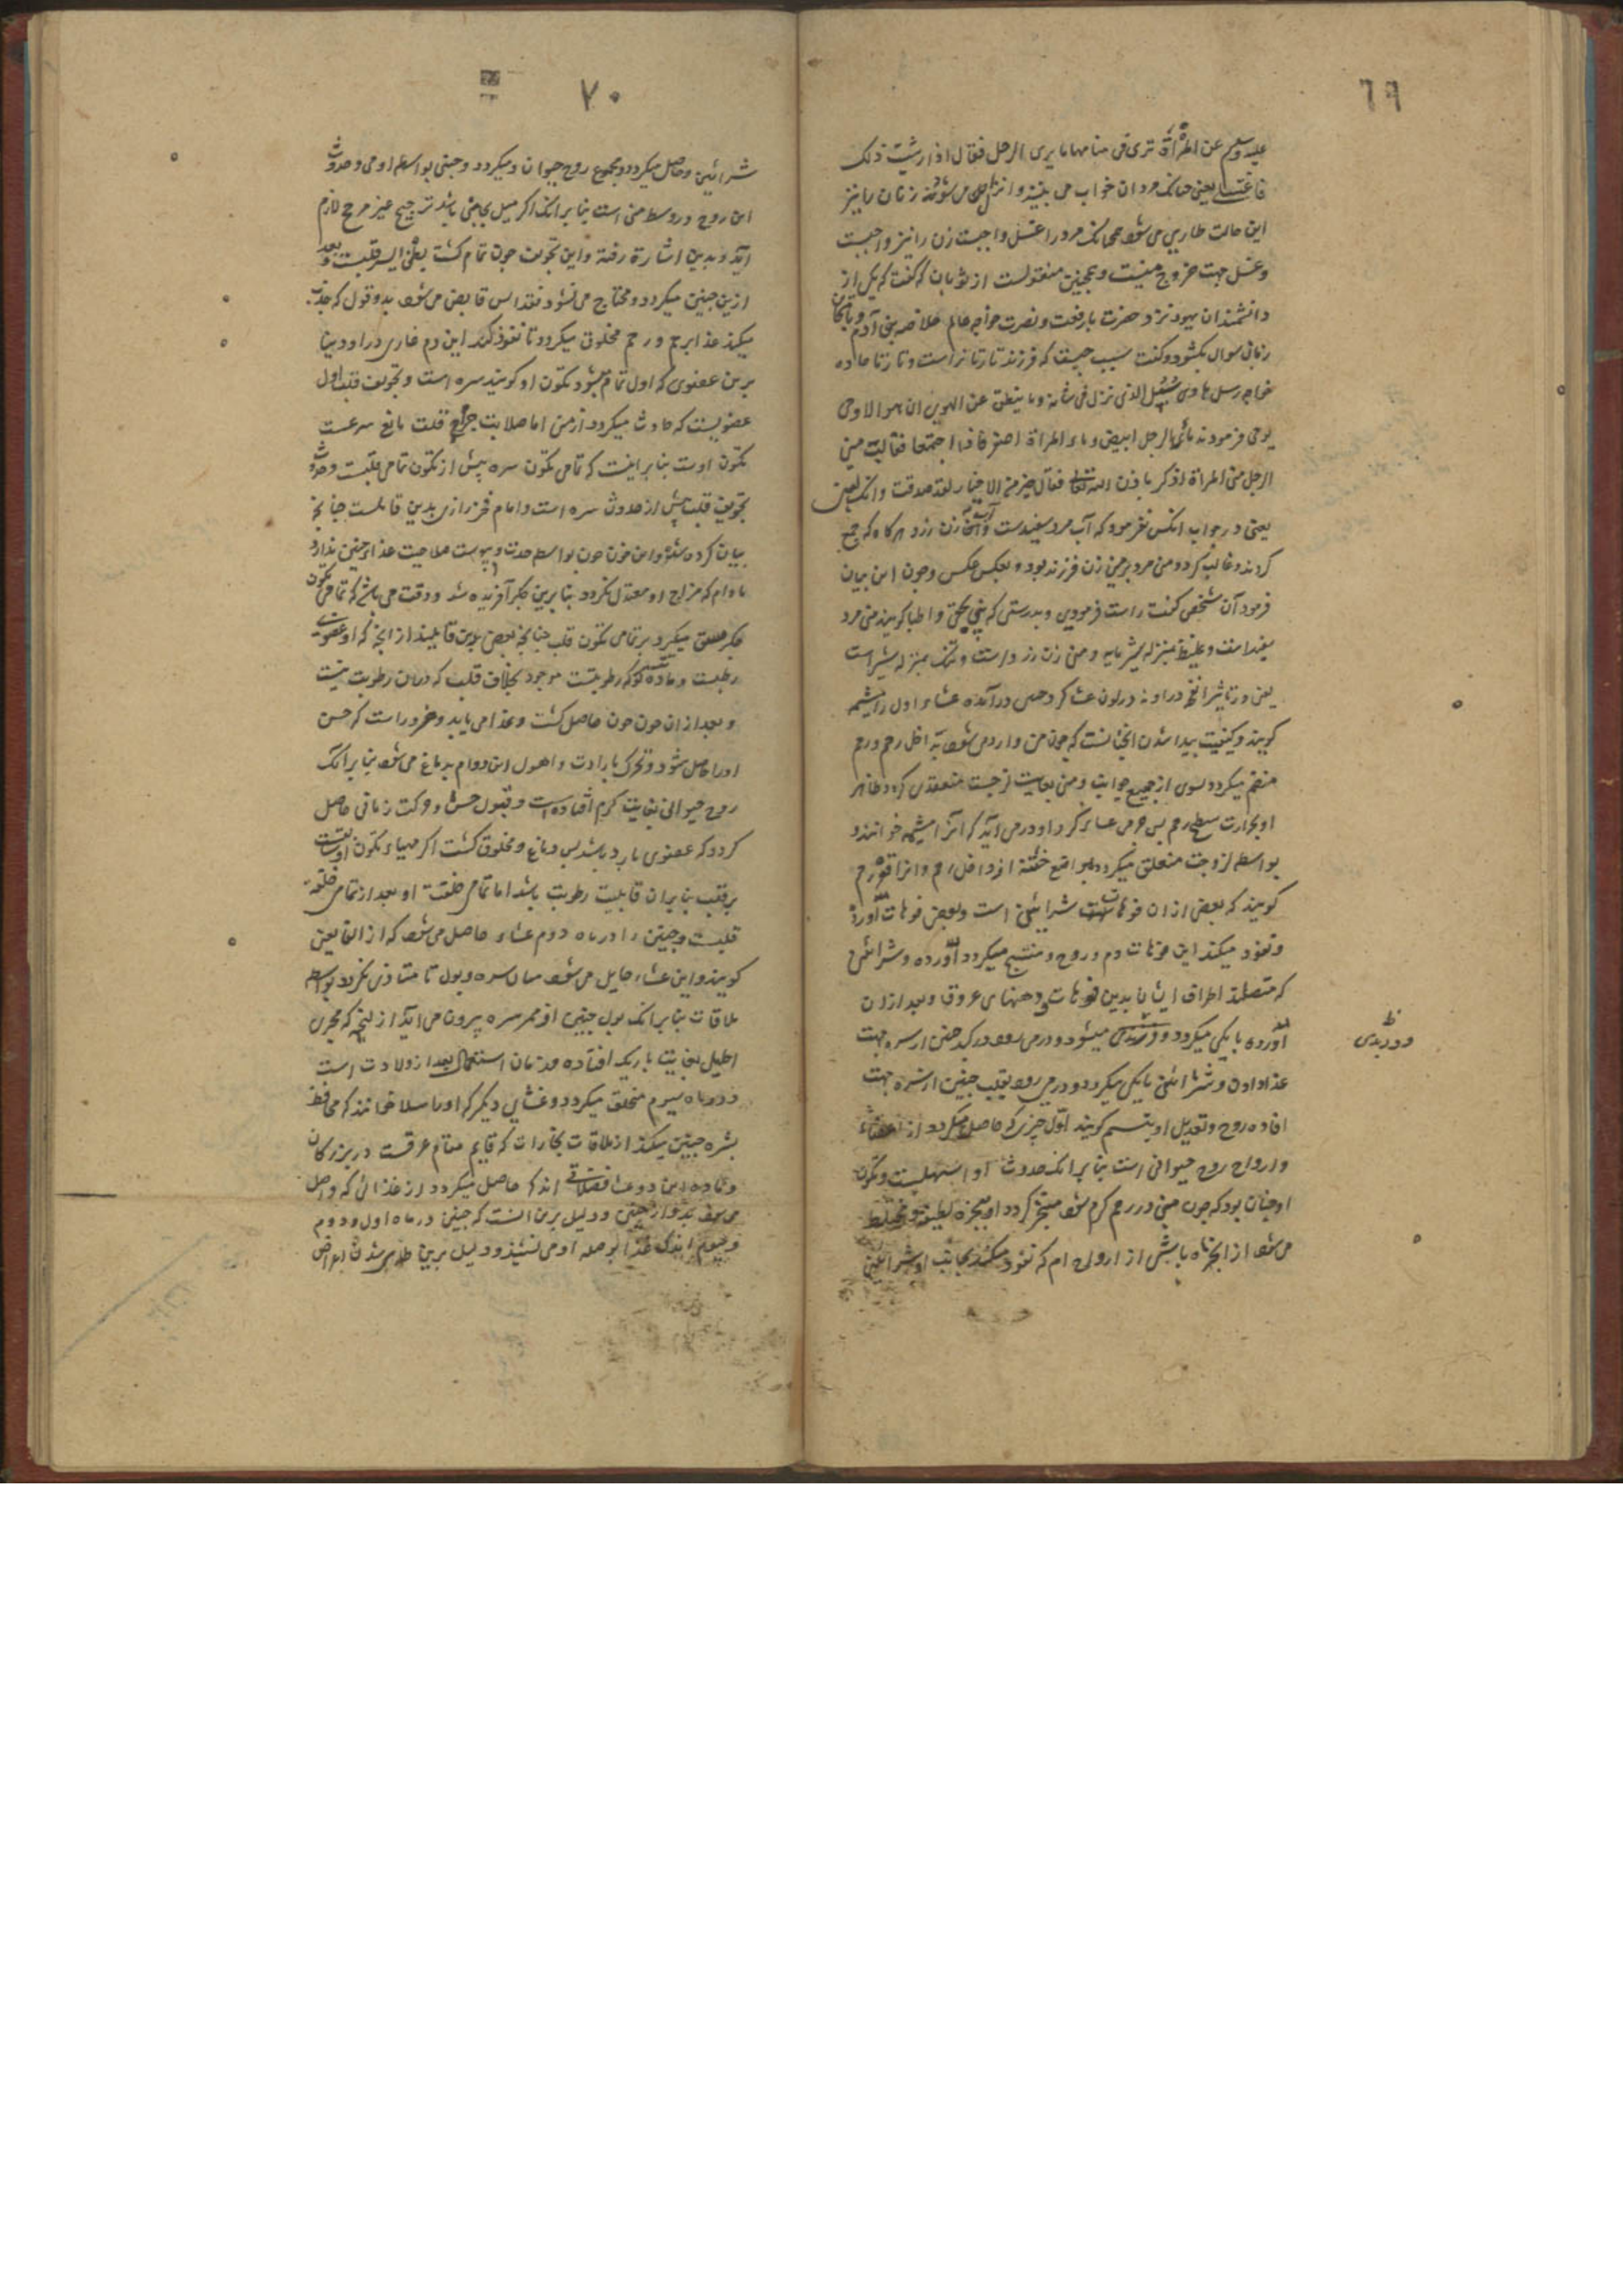 ٦٩
علیه وسلم عن المرأة تری فی منامها ما یری الرجل فقال اذا رئیت ذلک
فاغتسلی یعنی جنانک مردان خواب می بینند و انزال می شود زنان را نیز
این حالت طاری می شود همجنانک مرد را غسل واجبست زن را نیز واجبست
و غسل جهت خروج منیست و همجنین منقولست از ثوبان که گفت که یکی از
دانشمندان یهود نزد حضرت با رفعت و نصرت خواجه عالم خلاصه بنی آدم
زبان سوال بگشود و گفت سبب جیست که فرزند تارتا نر است و تارتا ماده
خواجه رسل هادی سبل الذی نزل فی شانه وما ینطق عن الهوی ان هو الا وحی
یوحی فرمودند ماء الرجل ابیض و ماء المراة اصفر فاذا اجتمعا فغالب منی
الرجل منی المراة اذکر باذن الله تعالی فقال خبر من الاخبار لقد صدقت وانک لنبی
یعنی در جواب انکس فرمود که آب مرد سفیدست و آب زن زرد هرگاه که جمع
کردند و غالب کردد منی مرد بر منی زن فرزند نر بود و بعکس عکس وجون این بیان
فرمود آن شخص گفت راست فرمودی و بدرستی که نبی بحقی و اطبا کویند منی مرد
سفید است و غلیظ بمنزله پنیر مایه و منی زن زرد است و تنک بمنزله شیر است
یعنی در تاثیر
کویند و کیفیت پیدا شدن انجنانست که جون منی وارد می شود بداخل رحم و رحم
منضم میکردد بسوی او از جمیع جوانب و منی بغایت لزجست منعقد می کردد ظاهر
او بحرارت سطح رحم پس جرمی غشائی کرد او در می آید که آنرا مشیمه خوانند و
بواسطه لزوجت متعلق میکردد بمواضع خشنه از داخل رحم و انرا نقر رحم
کویند که بعضی ازان فوهات شرایین است و بعضی فوهات آورده
و نفوذ میکند این فوهات دم و روح و منتسج میکردد آورده و شرائین
که متصلند اطراف ایشان بدین فوهات و دهنهای عروق و بعد ازان
آورده با یکی میکردد و وریدی میشود و در می رود در کبد جنین از سره جهت
غذا دادن و شرائین با یکی میکردد و در می رود بقلب جنین از سره جهت
افاده روح و تعدیل او بتنسم کویند اول چیزی که حاصل میکردد از اعضاء
و ارواح روح حیوانی است بنا برانک حدوث او اسهلیست و تکون
او جنان بود که جون منی در رحم کرم شود متبخر کردد ازو بخره لطیفه و مختلط
می شود از ابخره با بعضی از ارواح ام که نفوذ میکند بجانب او شرائین
ظ
و وریدی
٧٠
شرائین و حاصل میکردد و مجموع روح حیوان و میکردد و جنین بواسطه او حی و حدوث
این روح در وسط منی است بنا برانک اکر میل بجانبی باشد ترجیح غیر مرجح لازم
آید و بدین اشارة رفته و این تجویف جون تمام کشت بطن ایسر قلبست و بعد
ازین جنین میکردد و محتاج می شود بغذا پس فایض می شود بدو قوای که جذب
میکند غذا بر رحم و رحم مخلوق میکردد تا نفوذ کند این دم غاذی در او و بنا
برین عضوی که اول تمام میشود تکون او کویند سره است و تجویف قلب اول
عضویست که حادث میکردد از منی اما صلابت جرم قلب مانع سرعت
تکون اوست بنا برینست که تمامی تکون سره پیش از تکون تمامی قلبست و حدوث
تجویف قلب پیش از حدوث سره است و امام فخر رازی بدین قایلست جنانجه
بیان کرده شد و این خون جون بواسطه حدت و یبوست صلاحیت غذای جنین ندارد
مادام که مزاج او معتدل نکردد بنا برین جکر آفریده شد و وقت می باشد که تمامی تکون
جکر سبق میکیرد بر تمامی تکون قلب جنانجه بعضی بدین قایلند از انجه که او عضوی
رطبست و ماده تکونش که رطوبتست موجود بخلاف قلب که دران رطوبت نیست
و بعد ازان جون خون حاصل کشت و غذا می یابد و ضرور است که حس
او را حاصل شود و تحرک بارادت و احوال این دوام بدماغ می شود بنا برانک
روح حیوانی بغایت کرم افتاده است و قبول حس و حرکت زمانی حاصل
کردد که عضوی بارد باشد پس دماغ مخلوق کشت اکرجه مبداء تکون او سابقست
بر قلب بنا بران قابلیت رطوبت باشد اما تمامی خلقت او بعد از تمامی خلقت
قلبست و جنین را در ماه دوم غشاء حاصل می شود که از الفایفی
کویند و این غشاء حایل می شود میان سره و بول تا متاذی نکردد بواسطه
ملاقات بنا برانک بول جنین از ممر سره بیرون می اید از بهر انکه مجری
احلیل بغایت باریک افتاده و زمان استعمال بعد از ولادت است
و در ماه سیوم متخلق میکردد و غشای دیکر که او را سلا خوانند که محافظ
بشره جنین میکند از ملاقات بخارات که قایم مقام عرقست در بزرکان
و ماده این دو غشا فضلاتی اند که حاصل میکردد از غذائی که واصل
می شود بدو از جنین و دلیل برین انست که جنین در ماه اول و دوم
و سیوم اندک غذا بوصله او می نشیند و دلیل برین طاری شدن اعراض